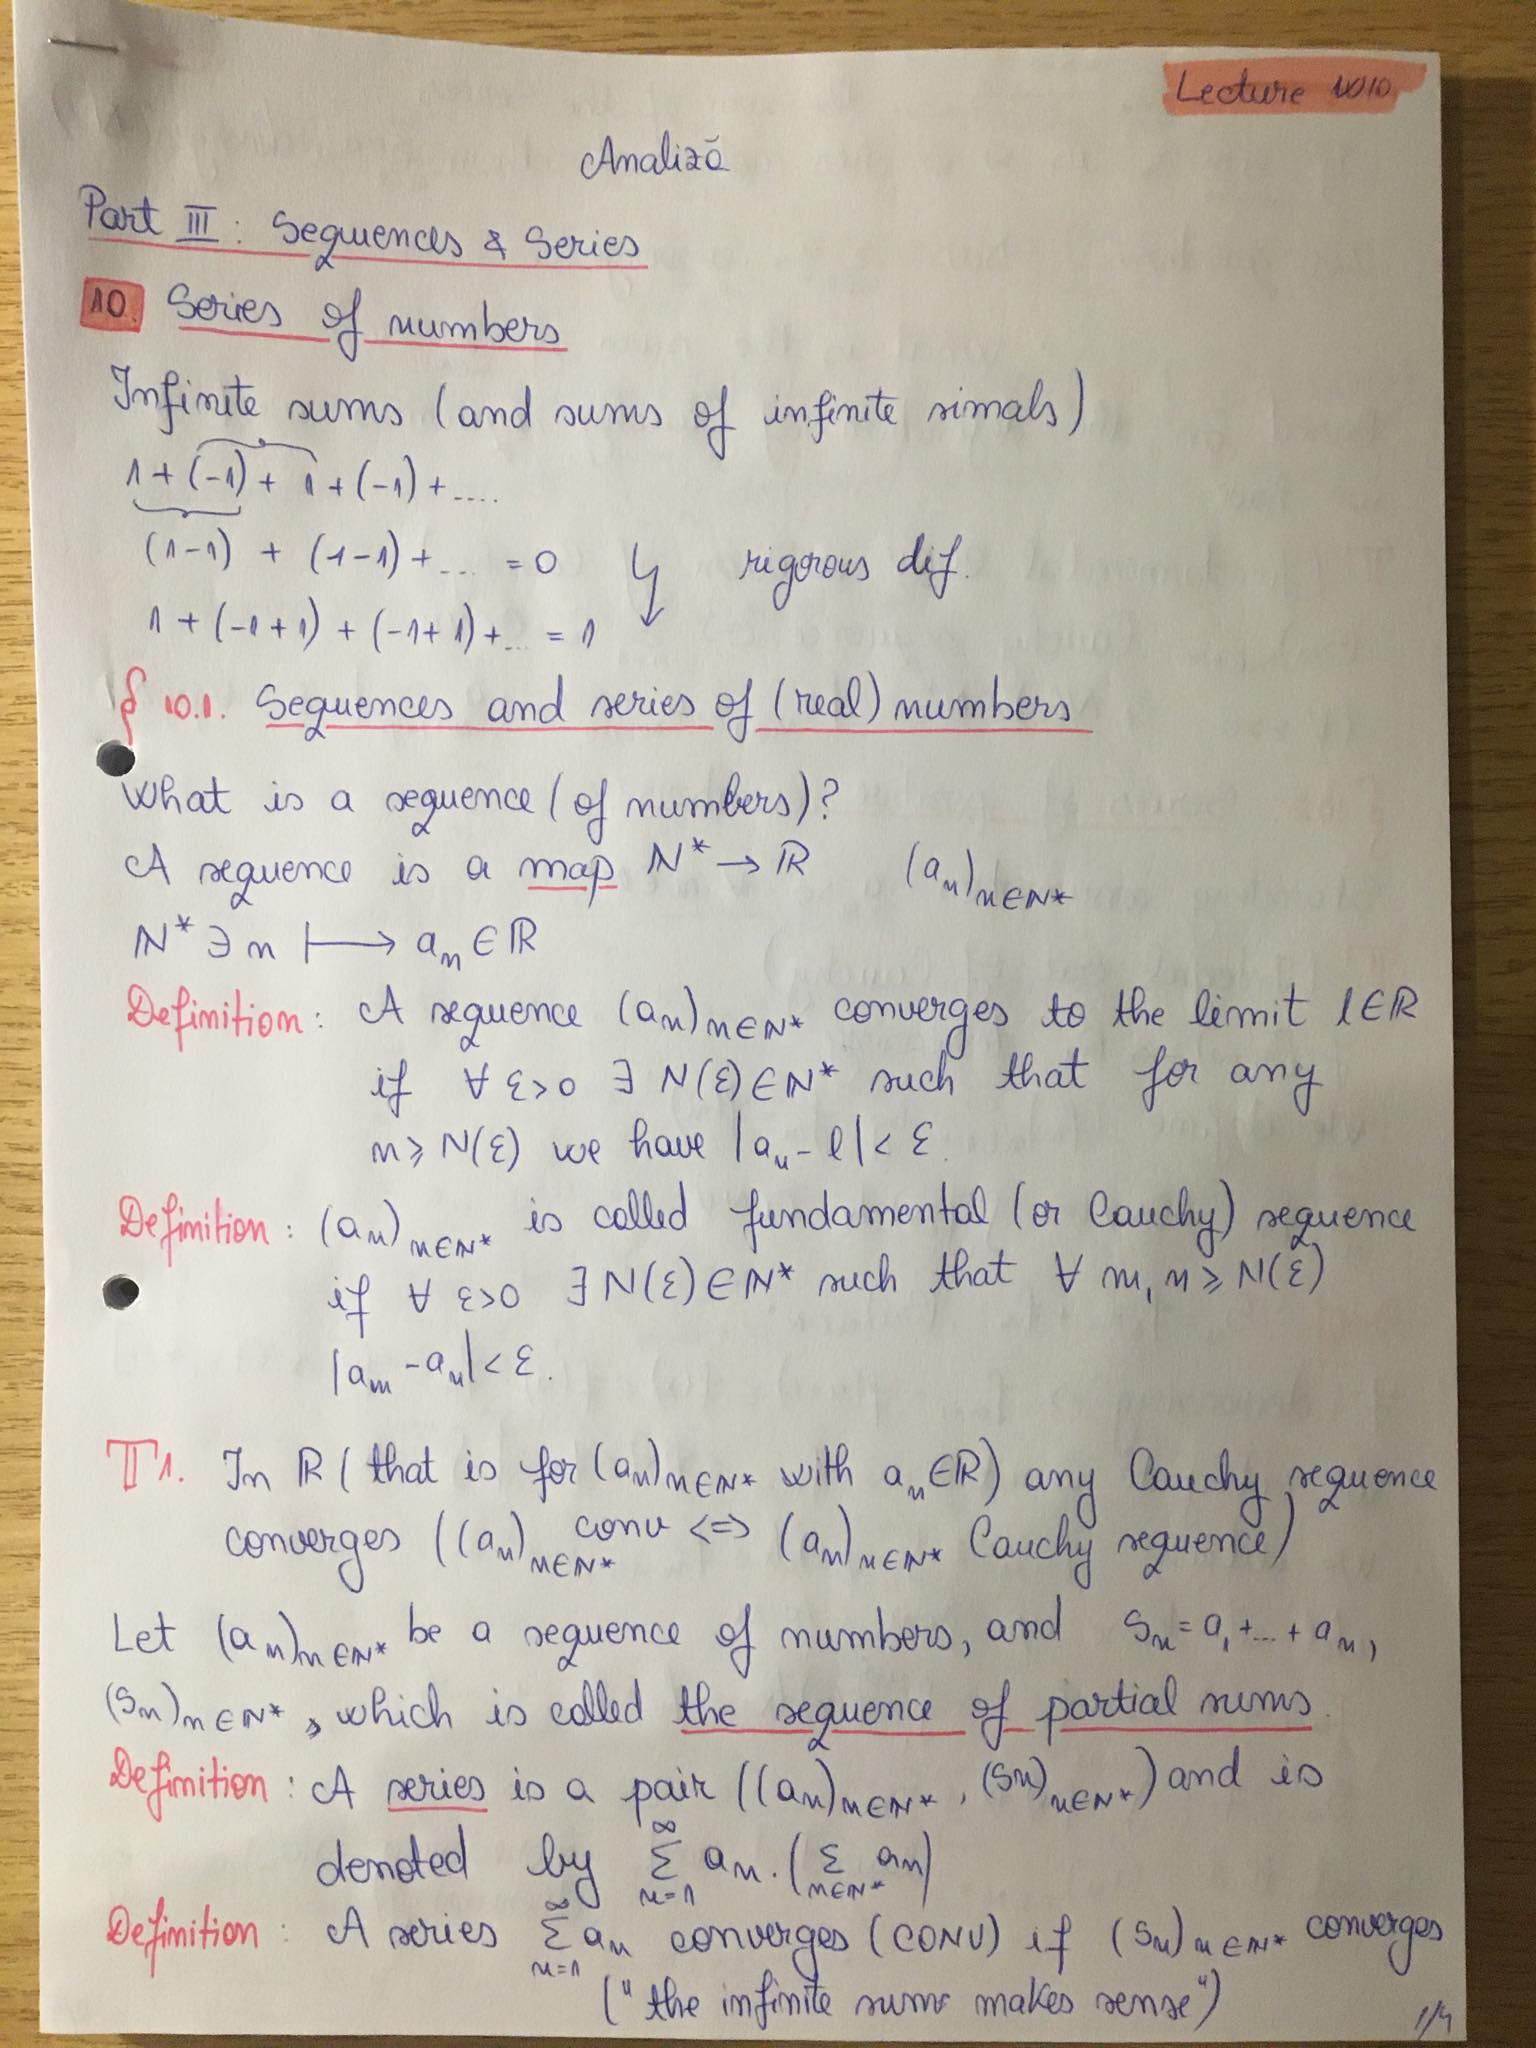 Lecture 10
Analiză
Part III: Sequences & Series
10. Series of numbers
Infinite sums (and sums of infinite simals)
1 + (-1) + 1 + (-1) + ....
(1-1) + (1-1) + ... = 0 rigorous dif.
1 + (-1+1) + (-1+1) + ... = 1
§ 10.1. Sequences and series of (real) numbers
What is a sequence (of numbers)?
A sequence is a map ℕ* → ℝ (aₙ)ₙ∈ℕ*
ℕ* ∋ n ⟼ aₙ ∈ ℝ
Definition: A sequence (aₙ)ₙ∈ℕ* converges to the limit l∈ℝ
if ∀ ε>0 ∃ N(ε)∈ℕ* such that for any
n ≥ N(ε) we have |aₙ - l| < ε.
Definition: (aₙ)ₙ∈ℕ* is called fundamental (or Cauchy) sequence
if ∀ ε>0 ∃ N(ε)∈ℕ* such that ∀ m, n ≥ N(ε)
|aₘ - aₙ| < ε.
T1. In ℝ (that is for (aₙ)ₙ∈ℕ* with aₙ∈ℝ) any Cauchy sequence
converges ((aₙ)ₙ∈ℕ* conv <=> (aₙ)ₙ∈ℕ* Cauchy sequence)
Let (aₙ)ₙ∈ℕ* be a sequence of numbers, and Sₙ = a₁ + ... + aₙ,
(Sₙ)ₙ∈ℕ*, which is called the sequence of partial sums.
Definition: A series is a pair ((aₙ)ₙ∈ℕ*, (Sₙ)ₙ∈ℕ*) and is
denoted by ∞Σn=1 aₙ. (Σn∈ℕ* aₙ)
Definition: A series ∞Σn=1 aₙ converges (CONV) if (Sₙ)ₙ∈ℕ* converges
("the infinite sum makes sense")
1/4